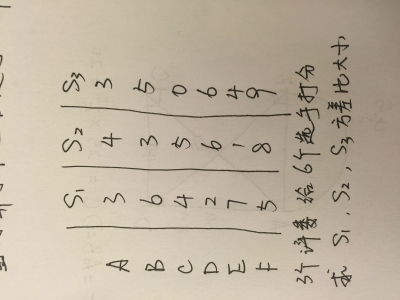 S₁ S₂ S₃
A 3 4 3
B 6 3 5
C 4 5 0
D 2 6 6
E 7 1 4
F 5 8 9
3个评委给6个选手打分
求 S₁, S₂, S₃ 方差比大小